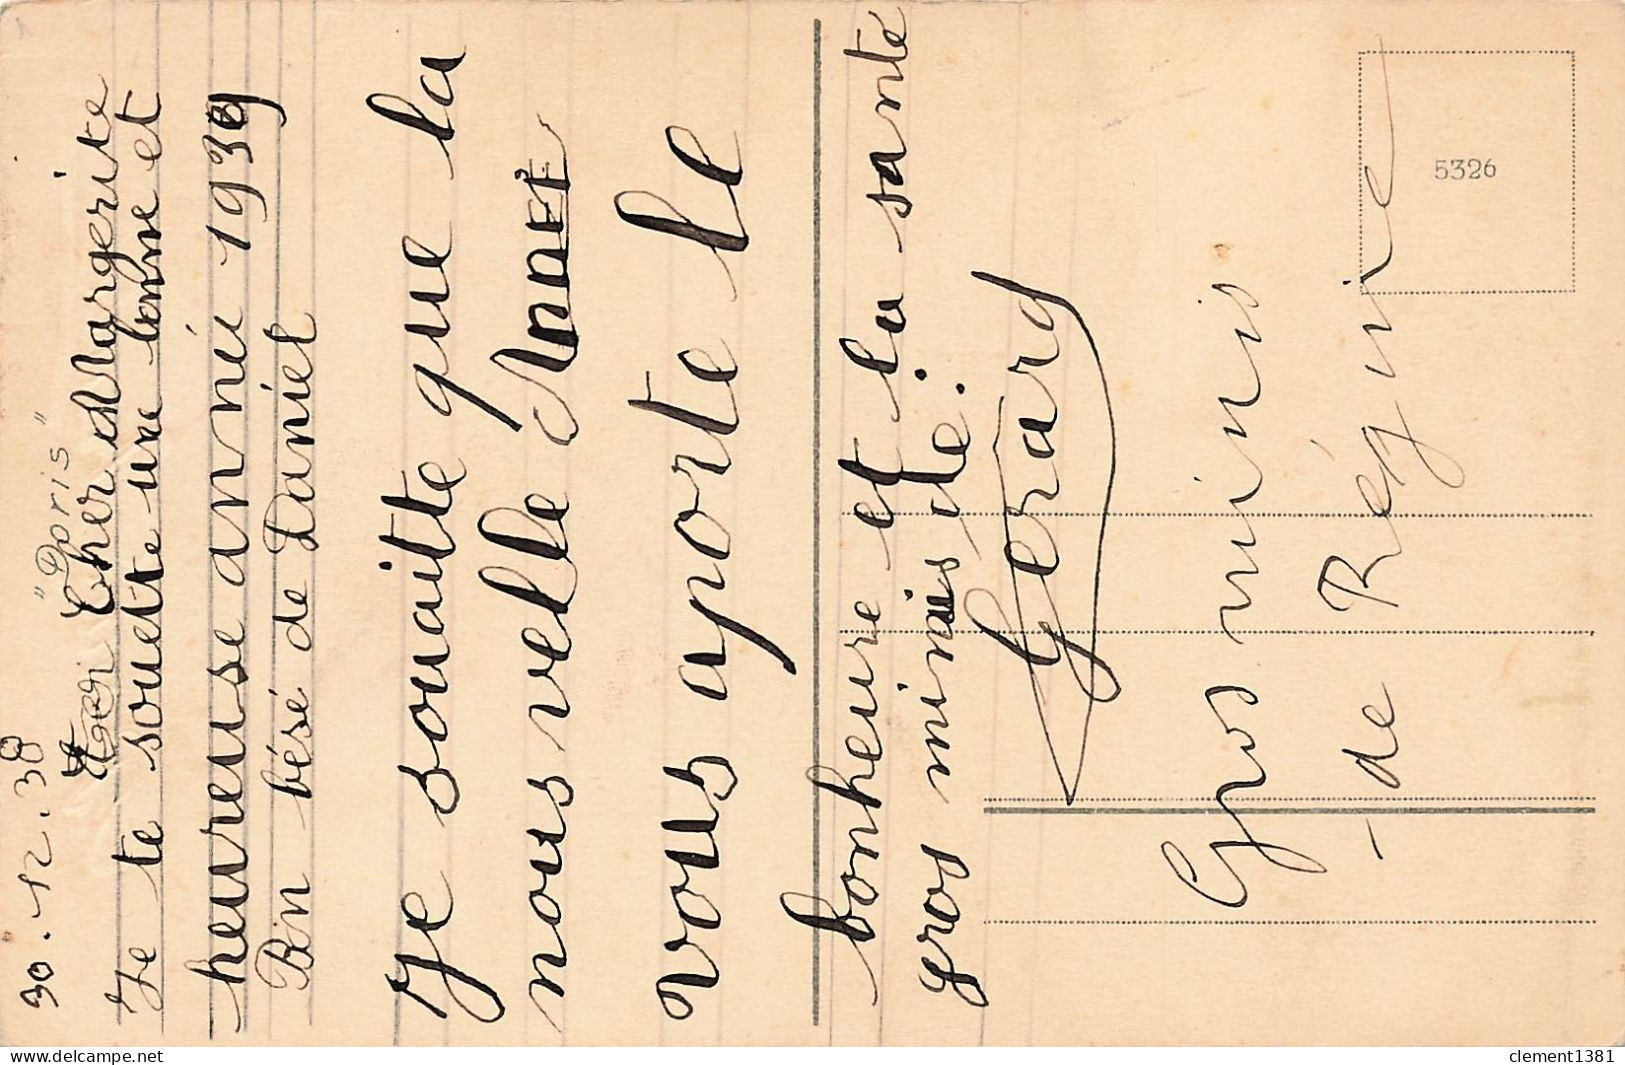 30.12.38
"Doris"
Cher Margerite
Je te souette une bonne et
heureuse anneé 1939
Bin bésé de Daniel
Je souaitte que la
nousvelle Année
vous aporte le
bonheure et la sante
gros minis de:
Gerard
Gros minis
- de Régine
5326
www.delcampe.net
clement1381